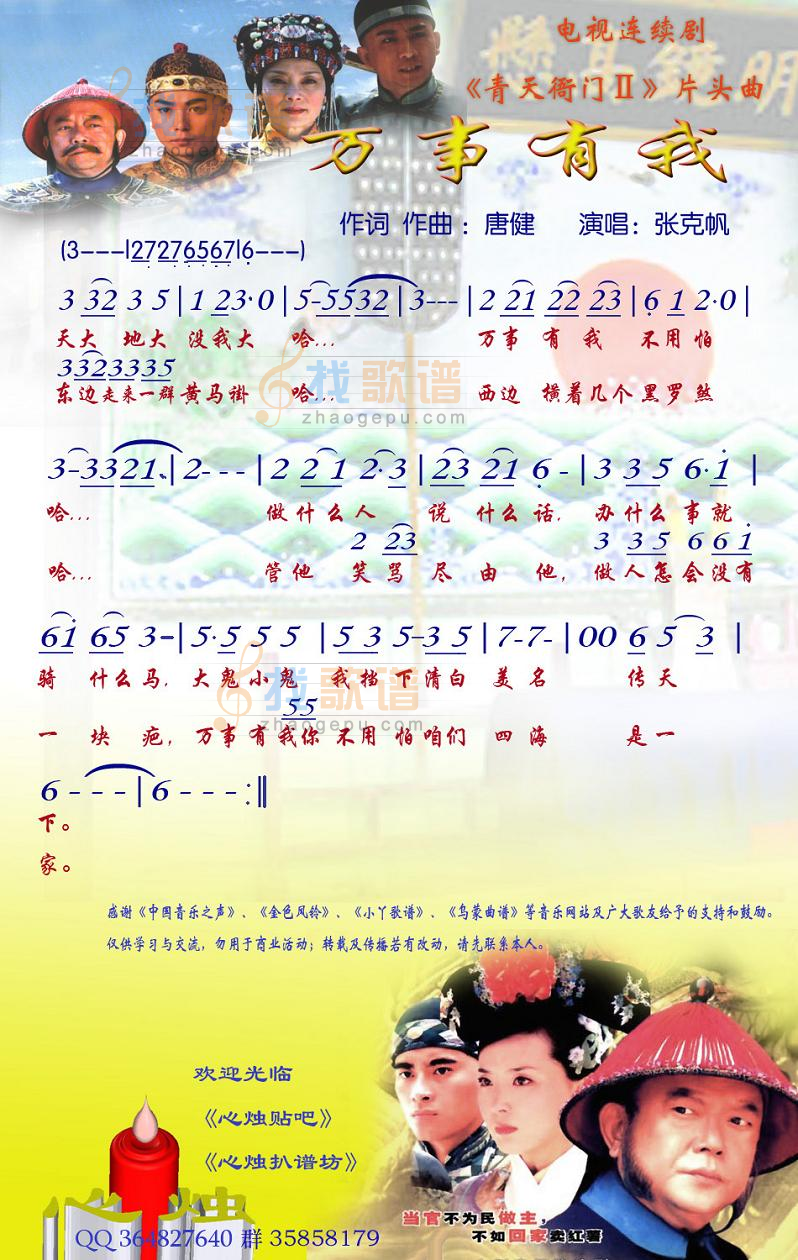 电视连续剧
明镜高悬
《青天衙门Ⅱ》片头曲
万事有我
zhaogepu.com
作词 作曲：唐健 演唱：张克帆
(3---|27276567|6---)
3 32 3 5|1 23·0|5-5532|3---|2 21 22 23|6 1 2·0|
天大 地大 没我大 哈... 万事 有 我 不用怕
3323335
东边走来一群黄马褂 哈... 西边 横着几个黑罗煞
找歌谱
zhaogepu.com
3-3321.|2---|2 2 1 2·3|23 21 6-|3 3 5 6·1|
哈... 做什么人 说 什么话, 办什么事就
2 23 3 3 5 6 6 1
哈... 管他 笑骂尽由他, 做人怎会没有
61 65 3-|5·5 5 5|5 3 5-3 5|7-7-|00 6 5 3|
骑 什么马, 大鬼小鬼 我挡下清白 美名 传天
找歌谱
55
zhaogepu.com
一 块 疤, 万事有我你不用怕咱们 四海 是一
6---|6---:‖
下。
家。
感谢《中国音乐之声》、《金色风铃》、《小丫歌谱》、《乌蒙曲谱》等音乐网站及广大歌友给予的支持和鼓励。
仅供学习与交流，勿用于商业活动；转载及传播若有改动，请先联系本人。
欢迎光临
《心烛贴吧》
《心烛扒谱坊》
心烛
当官不为民做主,
不如回家卖红薯
QQ 364827640 群 35858179